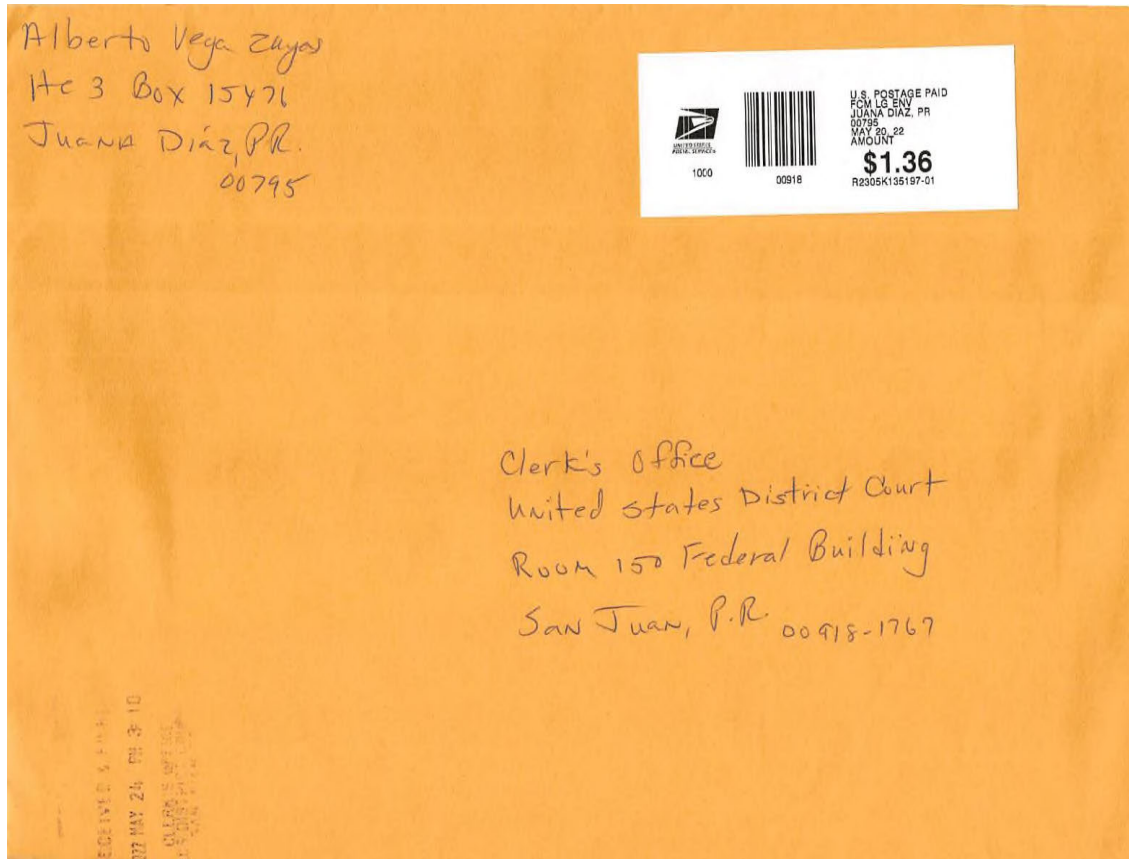 Alberto Vega Zayas
HC 3 Box 15476
Juana Díaz, P.R.
00795
UNITED STATES
POSTAL SERVICE
1000
00918
U.S. POSTAGE PAID
FCM LG ENV
JUANA DIAZ, PR
00795
MAY 20, 22
AMOUNT
$1.36
R2305K135197-01
Clerk's Office
United States District Court
Room 150 Federal Building
San Juan, P.R. 00918-1767
MAY 24 PM 3:10
CLERK'S OFFICE